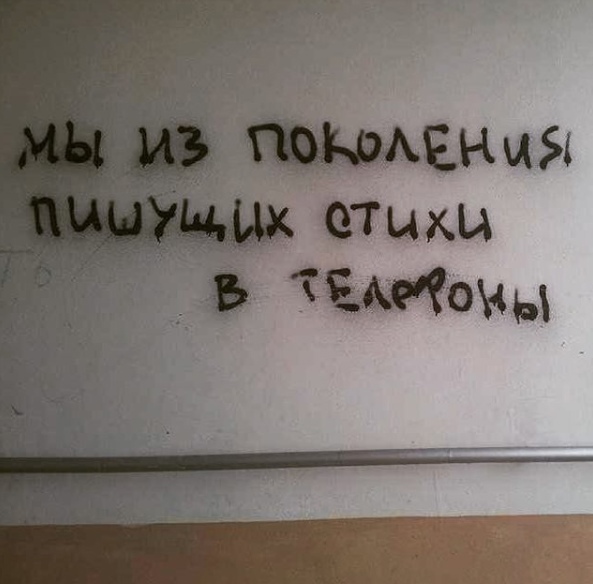 мы из поколения
пишущих стихи
в телефоны